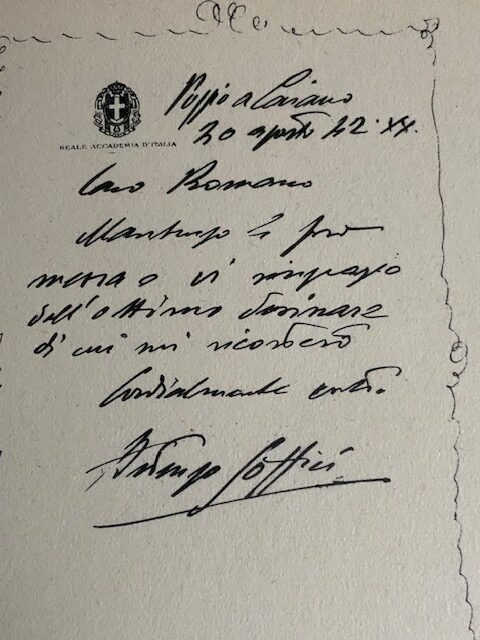 Poggio a Caiano
20 agosto 42. XX.
REALE ACCADEMIA D'ITALIA
Caro Romano
Mantengo la pro
messa e vi ringrazio
dell'ottimo desinare
di cui mi ricorderò
Cordialmente vostro
Ardengo Soffici